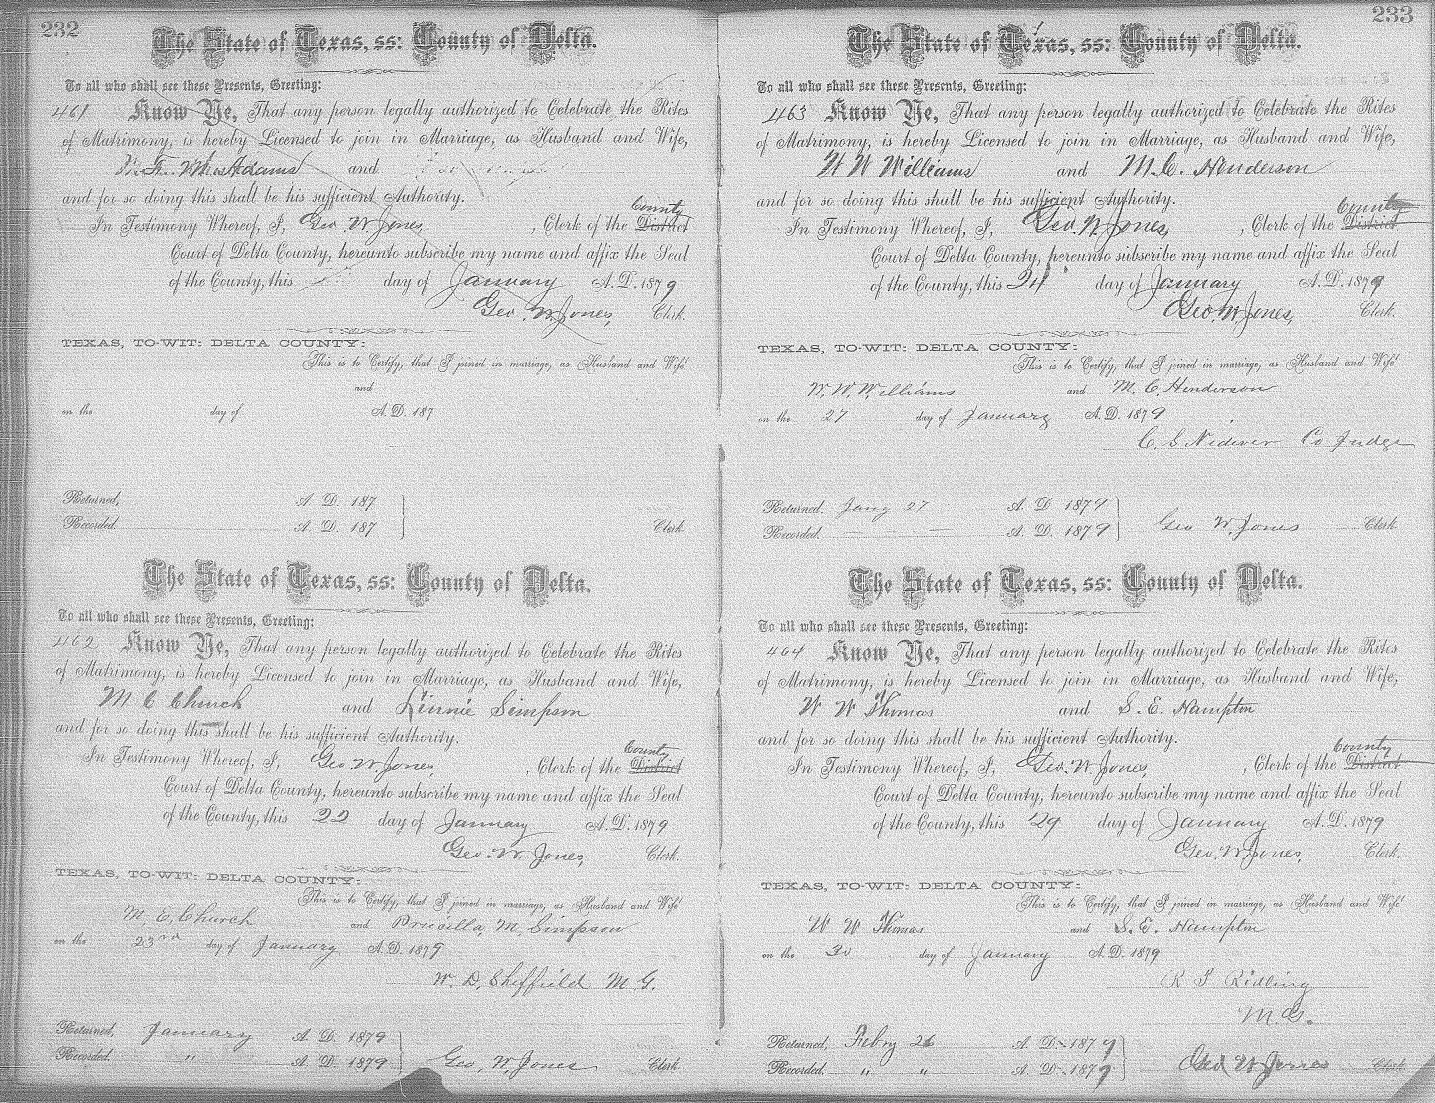 232
The State of Texas, ss: County of Delta.
To all who shall see these Presents, Greeting:
461 Know Ye, That any person legally authorized to Celebrate the Rites
of Matrimony, is hereby Licensed to join in Marriage, as Husband and Wife,
McAdams and
and for so doing this shall be his sufficient Authority.
In Testimony Whereof, I, Geo. W Jones, Clerk of the County District
Court of Delta County, hereunto subscribe my name and affix the Seal
of the County, this day of January A. D. 1879
Geo. W. Jones, Clerk.
TEXAS, TO-WIT: DELTA COUNTY:
This is to Certify, that I joined in marriage, as Husband and Wife
and
on the day of A. D. 187
Returned, A. D. 187
Recorded. A. D. 187 Clerk
The State of Texas, ss: County of Delta.
To all who shall see these Presents, Greeting:
462 Know Ye, That any person legally authorized to Celebrate the Rites
of Matrimony, is hereby Licensed to join in Marriage, as Husband and Wife,
M C Church and Linnie Simpson
and for so doing this shall be his sufficient Authority.
In Testimony Whereof, I, Geo. W. Jones, Clerk of the County District
Court of Delta County, hereunto subscribe my name and affix the Seal
of the County, this 22 day of January A. D. 1879
Geo. W. Jones, Clerk.
TEXAS, TO-WIT: DELTA COUNTY:
This is to Certify, that I joined in marriage, as Husband and Wife
M. E. Church and Priscilla, M. Simpson
on the 23rd day of January A. D. 1879
W. D. Sheffield M G.
Returned, January A. D. 1879
Recorded. " A. D. 1879 Geo, W. Jones Clerk
233
The State of Texas, ss: County of Delta.
To all who shall see these Presents, Greeting:
463 Know Ye, That any person legally authorized to Celebrate the Rites
of Matrimony, is hereby Licensed to join in Marriage, as Husband and Wife,
W W Williams and M. C. Henderson
and for so doing this shall be his sufficient Authority.
In Testimony Whereof, I, Geo. W. Jones, Clerk of the County District
Court of Delta County, hereunto subscribe my name and affix the Seal
of the County, this 24 day of January A. D. 1879
Geo. W. Jones, Clerk.
TEXAS, TO-WIT: DELTA COUNTY:
This is to Certify, that I joined in marriage, as Husband and Wife
W. W. Williams and M. C. Henderson
on the 27 day of January A. D. 1879
C. S. Nidever Co Judge
Returned, Jany 27 A. D. 1879
Recorded. A. D. 1879 Geo W. Jones Clerk
The State of Texas, ss: County of Delta.
To all who shall see these Presents, Greeting:
464 Know Ye, That any person legally authorized to Celebrate the Rites
of Matrimony, is hereby Licensed to join in Marriage, as Husband and Wife,
W W Thomas and S. E. Hampton
and for so doing this shall be his sufficient Authority.
In Testimony Whereof, I, Geo. W. Jones, Clerk of the County District
Court of Delta County, hereunto subscribe my name and affix the Seal
of the County, this 29 day of January A. D. 1879
Geo. W. Jones, Clerk.
TEXAS, TO-WIT: DELTA COUNTY:
This is to Certify, that I joined in marriage, as Husband and Wife
W W Thomas and S. E. Hampton
on the 30 day of January A. D. 1879
Ridling
M. G.
Returned, Febry 26 A. D. 1879
Recorded. " " A. D. 1879 Geo W Jones Clerk